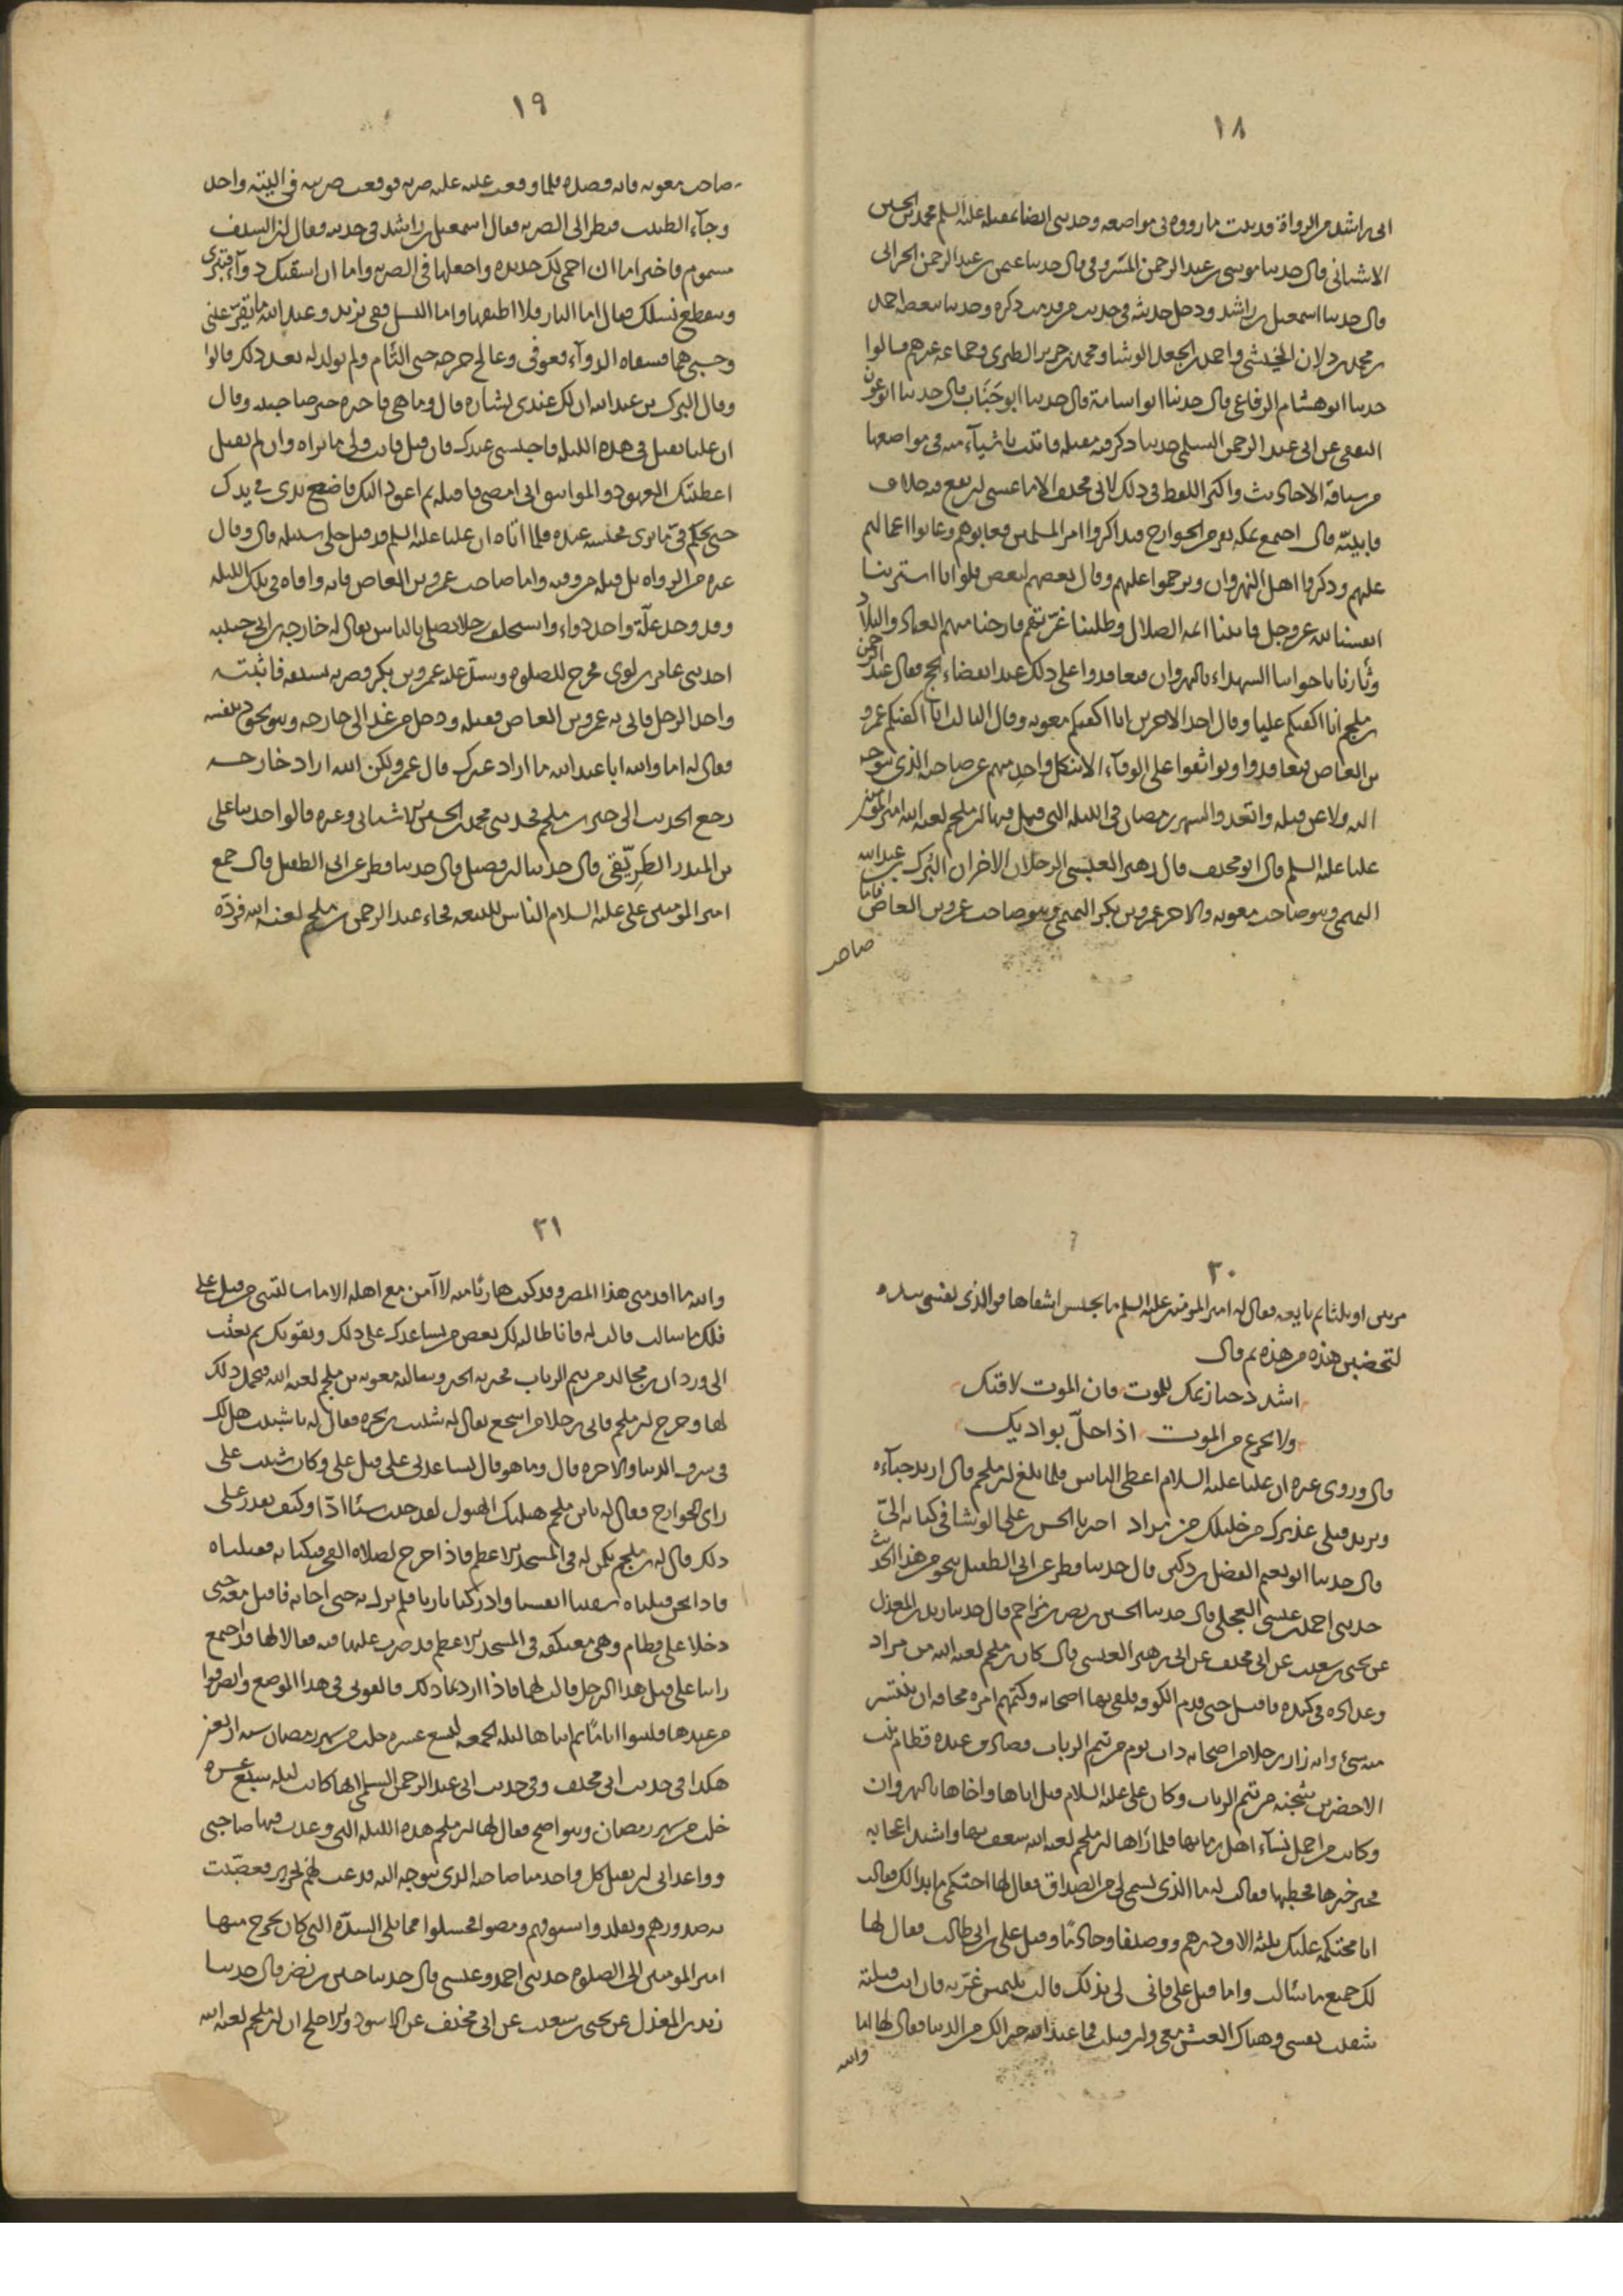 ١٨
الى راشد من الرواة قد بينت ما رووه فى مواضعه وحدثنى ايضا بمقتله عليه السلم محمد بن الحسين
الاشنانى قال حدثنا موسى بن عبد الرحمن المسروقى قال حدثنا عثمن بن عبد الرحمن الحرانى
قال حدثنا اسمعيل بن راشد ودخل حديثه فى حديث من قدمت ذكره وحدثنا ببعضه احمد
بن محمد بن دلان الخيشى واحمد بن الجعد الوشا ومحمد بن جرير الطبرى وجماعة غيرهم قالوا
حدثنا ابو هشام الرفاعى قال حدثنا ابو اسامة قال حدثنا ابو جَنَاب قال حدثنا ابو عون
الثقفى عن ابى عبد الرحمن السلمى حديثا ذكر فيه مقتله فاتيت باشيآء منه فى مواضعها
من سياقة الاحاديث واكثر اللفظ فى ذلك لابى مخنف الا ما عسى ان يقع فيه خلاف
فابيّنه قال اجتمع بمكة نفر من الخوارج فتذاكروا امر المسلمين فعابوهم وعابوا اعمالهم
عليهم وذكروا اهل النهروان وترحموا عليهم وقال بعضهم لبعض فلو انا اشترينا
انفسنا لله عز وجل فاتينا ائمة الضلال وطلبنا غرّتهم فارحنا منهم العباد والبلاد
وثأرنا باخواننا الشهداء بالنهروان فتعاقدوا على ذلك عند انقضاء الحج فقال عبد الرحمن
بن ملجم انا اكفيكم عليا وقال احد الاخرين انا اكفيكم معوية وقال الثالث انا اكفيكم عمرو
بن العاص فتعاقدوا وتواثقوا على الوفآء الا ينكل واحد منهم عن صاحبه الذى يتوجه
اليه ولا عن قتله واتعدوا لشهر رمضان فى الليلة التى قتل فيها ابن ملجم لعنه الله امير المؤمنين
عليا عليه السلم قال ابو مخنف قال زهير العبسى الرجلان الاخران البُرَك بن عبد الله
التميمى وهو صاحب معوية والاخر عمرو بن بكر التميمى وهو صاحب عمرو بن العاص فاما
صاحب
١٩
صاحب معوية فانه قصده فلما وقعت عليه عينه ضربه فوقعت ضربته فى اليته واخذ
وجآء الطبيب فنظر الى الضربة فقال اسمعيل بن راشد فى حديثه فقال ان السيف
مسموم فاختر اما ان احمى لك حديدة واجعلها فى الضربة واما ان اسقيك دوآء فتبرى
وينقطع نسلك فقال اما النار فلا اطيقها واما النسل ففى يزيد وعبد الله ما تقرّ عينى
وحسبى بهما فسقاه الدوآء فعوفى وعالج جرحه حتى التأم ولم يولد له بعد ذلك قالوا
وقال البرك بن عبد الله ان لك عندى بشارة قال وما هى فاخبره خبر صاحبيه وقال
ان عليا يقتل فى هذه الليلة فاحبسنى عندك فان قتل فانت ولى ما تراه وان لم يقتل
اعطيتك العهود والمواثيق انى امضى فاقتله ثم اعود اليك فاضع يدى فى يدك
حتى تحكم فىّ بما ترى فحبسه عنده فلما اتاه ان عليا عليه السلم قد قتل خلى سبيله قال وقال
غيره من الرواة بل قتله من وقته واما صاحب عمرو بن العاص فانه وافاه فى تلك الليلة
وقد وجد علّة واخذ دواء واستخلف رجلا يصلى بالناس يقال له خارجة بن ابى حبيبة
احد بنى عامر بن لوى فخرج للصلوة وشدّ عليه عمرو بن بكر فضربه بسيفه فاثبته
واخذ الرجل فاتى به عمرو بن العاص فقتله ودخل من غد الى خارجة وهو يجود بنفسه
فقال له اما والله ابا عبد الله ما اراد غيرك قال عمرو لكن الله اراد خارجة
رجع الحديث الى خبر ابن ملجم فحدثنى محمد بن الحسين الاشنانى وغيره قالوا حدثنا على
بن المنذر الطَرِيقى قال حدثنا ابن فضيل قال حدثنا فطر عن ابى الطفيل قال جمع
امير المؤمنين على عليه السلام الناس للبيعة فجاء عبد الرحمن بن ملجم لعنه الله فردّه
٢٠
مرتين او ثلثا ثم بايعه فقال له امير المؤمنين عليه السلم ما يحبس اشقاها فوالذى نفسى بيده
لتخضبن هذه من هذه ثم قال
اشدد حيازيمك للموت فان الموت لاقيك
ولا تجزع من الموت اذا حلّ بواديك
قال وروى غيره ان عليا عليه السلام اعطى الناس فلما بلغ ابن ملجم قال اريد حبآءه
ويريد قتلى عذيرك من خليلك من مراد اخبرنا الحسن بن على الوشا فى كتابه الىّ
قال حدثنا ابو نعيم الفضل بن دكين قال حدثنا فطر عن ابى الطفيل بنحو من هذا الحديث
حدثنى احمد بن عيسى العجلى قال حدثنا الحسين بن نصر بن مزاحم قال حدثنا زيد بن المعذل
عن يحيى بن سعيد عن ابى مخنف عن ابى زهير العبسى قال كان ابن ملجم لعنه الله من مراد
وعداده فى كندة فاقبل حتى قدم الكوفة فلقى بها اصحابه وكتمهم امره مخافة ان ينتشر
منه شئ وانه زار رجلا من اصحابه ذات يوم من تيم الرباب فصادف عنده قطام بنت
الاخضر بن شجنة من تيم الرباب وكان على عليه السلام قتل اباها واخاها بالنهروان
وكانت من اجمل نسآء اهل زمانها فلما رآها ابن ملجم لعنه الله شغف بها واشتد اعجابه
فخبر خبرها فخطبها فقالت له ما الذى تسمى لى من الصداق فقال لها احتكمى ما بدا لك فقالت
انا محتكمة عليك ثلثة الاف درهم ووصيفا وخادما وقتل على بن ابى طالب فقال لها
لك جميع ما سألت واما قتل على فانى لى بذلك قالت تلتمس غرّته فان انت قتلته
شفيت نفسى وهناك العيش معى وان قتلت فما عند الله خير لك من الدنيا فقال لها اما
والله
٢١
والله ما اقدمنى هذا المصر وقد كنت هاربا منه لا آمن مع اهله الا ما سالتنى من قتل على
فلك ما سالت قالت له فانا طالبة لك بعض من يساعدك على ذلك ويقويك ثم بعثت
الى وردان بن مجالد من تيم الرباب فخبرته الخبر وسالته معونة ابن ملجم لعنه الله فتحمل ذلك
لها وخرج ابن ملجم فاتى رجلا من اشجع يقال له شبيب بن بجرة فقال له يا شبيب هل لك
فى شرف الدنيا والاخرة قال وما هو قال تساعدنى على قتل على وكان شبيب على
راى الخوارج فقال له يا بن ملجم هبلتك الهبول لقد جئت شيئا ادّا وكيف نقدر على
ذلك قال له ابن ملجم نكمن له فى المسجد الاعظم فاذا خرج لصلاة الفجر فتكنا به فقتلناه
فاذا نحن قتلناه شفينا انفسنا وادركنا ثارنا فلم يزل به حتى اجابه فاقبل معه حتى
دخلا على قطام وهى معتكفة فى المسجد الاعظم قد ضرب عليها قبة فقالا لها قد اجتمع
راينا على قتل هذا الرجل قالت لهما فاذا اردتما ذلك فالقونى فى هذا الموضع وانصرفوا
من عندها فلبثوا اياما ثم اتياها ليلة الجمعة لتسع عشرة خلت من شهر رمضان سنة اربعين
هكذا فى حديث ابى مخنف وفى حديث ابى عبد الرحمن السلمى انها كانت ليلة سبع عشرة
خلت من شهر رمضان وهو اصح فقال لها ابن ملجم هذه الليلة التى وعدت فيها صاحبى
وواعدانى ان يقتل كل واحد منا صاحبه الذى يتوجه اليه فدعت لهم بحرير فعصّبت
به صدورهم وتقلدوا سيوفهم ومضوا فجلسوا مما يلى السدّة التى كان يخرج منها
امير المؤمنين الى الصلوة حدثنى احمد بن عيسى قال حدثنا حسين بن نصر قال حدثنا
زيد بن المعذل عن يحيى بن سعيد عن ابى مخنف عن الاسود والاجلح ان ابن ملجم لعنه الله